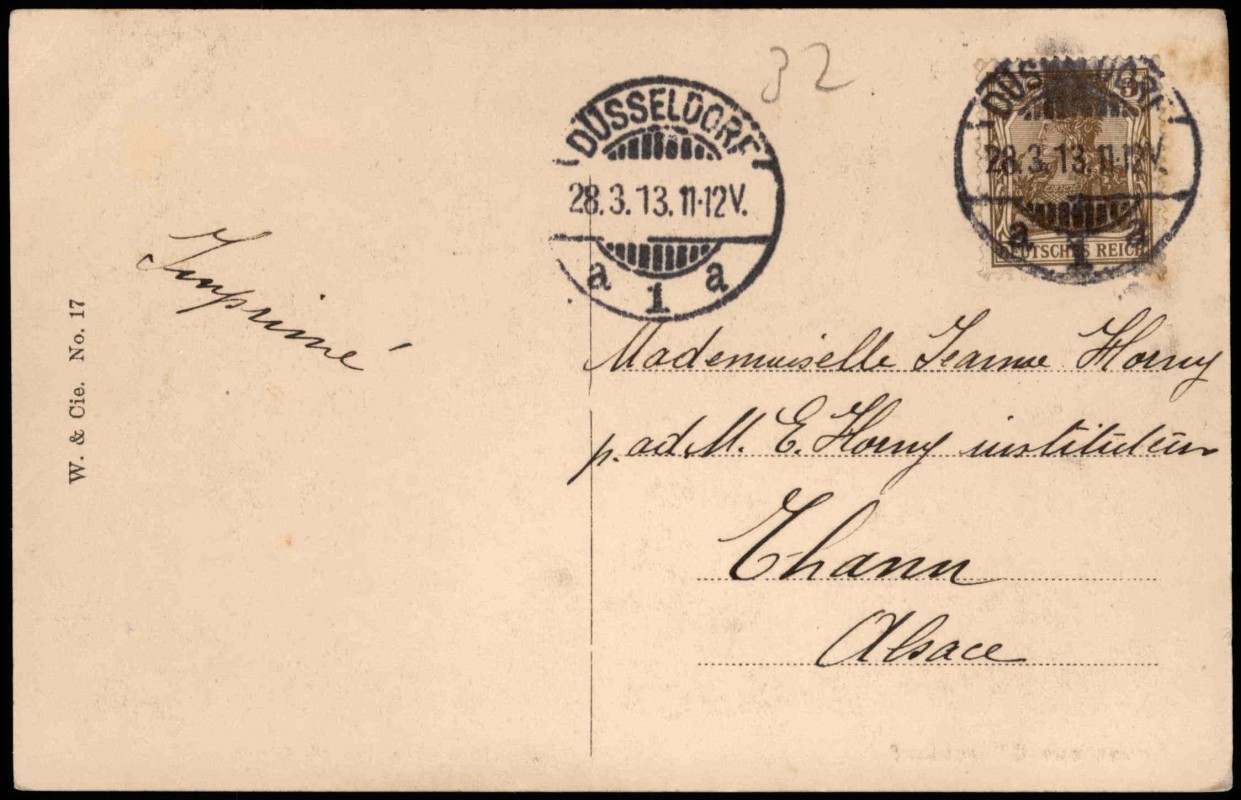 32
DÜSSELDORF
28.3.13.11-12V.
a 1 a
DÜSSELDORF
3
28.3.13.11-12V.
a 1 a
DEUTSCHES REICH
Imprimé
W. & Cie. No. 17
Mademoiselle Jeanne Horny
p. ad M. E. Horny instituteur
Thann
Alsace